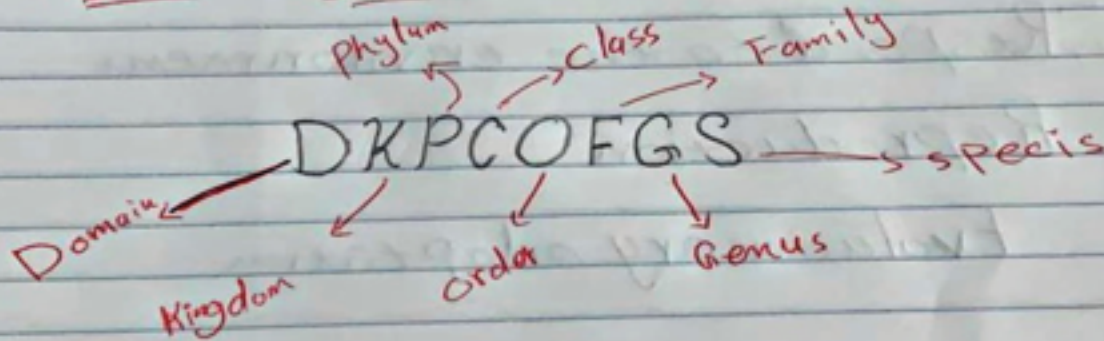 Phylum class Family
DKPCOFGS specis
Domain
Kingdom order Genus